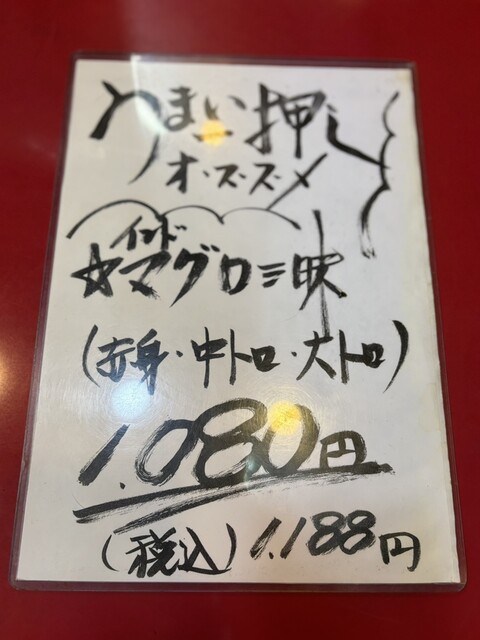 うまい押し
オススメ
☆インドマグロ三昧
(赤身・中トロ・大トロ)
1.080円
(税込)1.188円